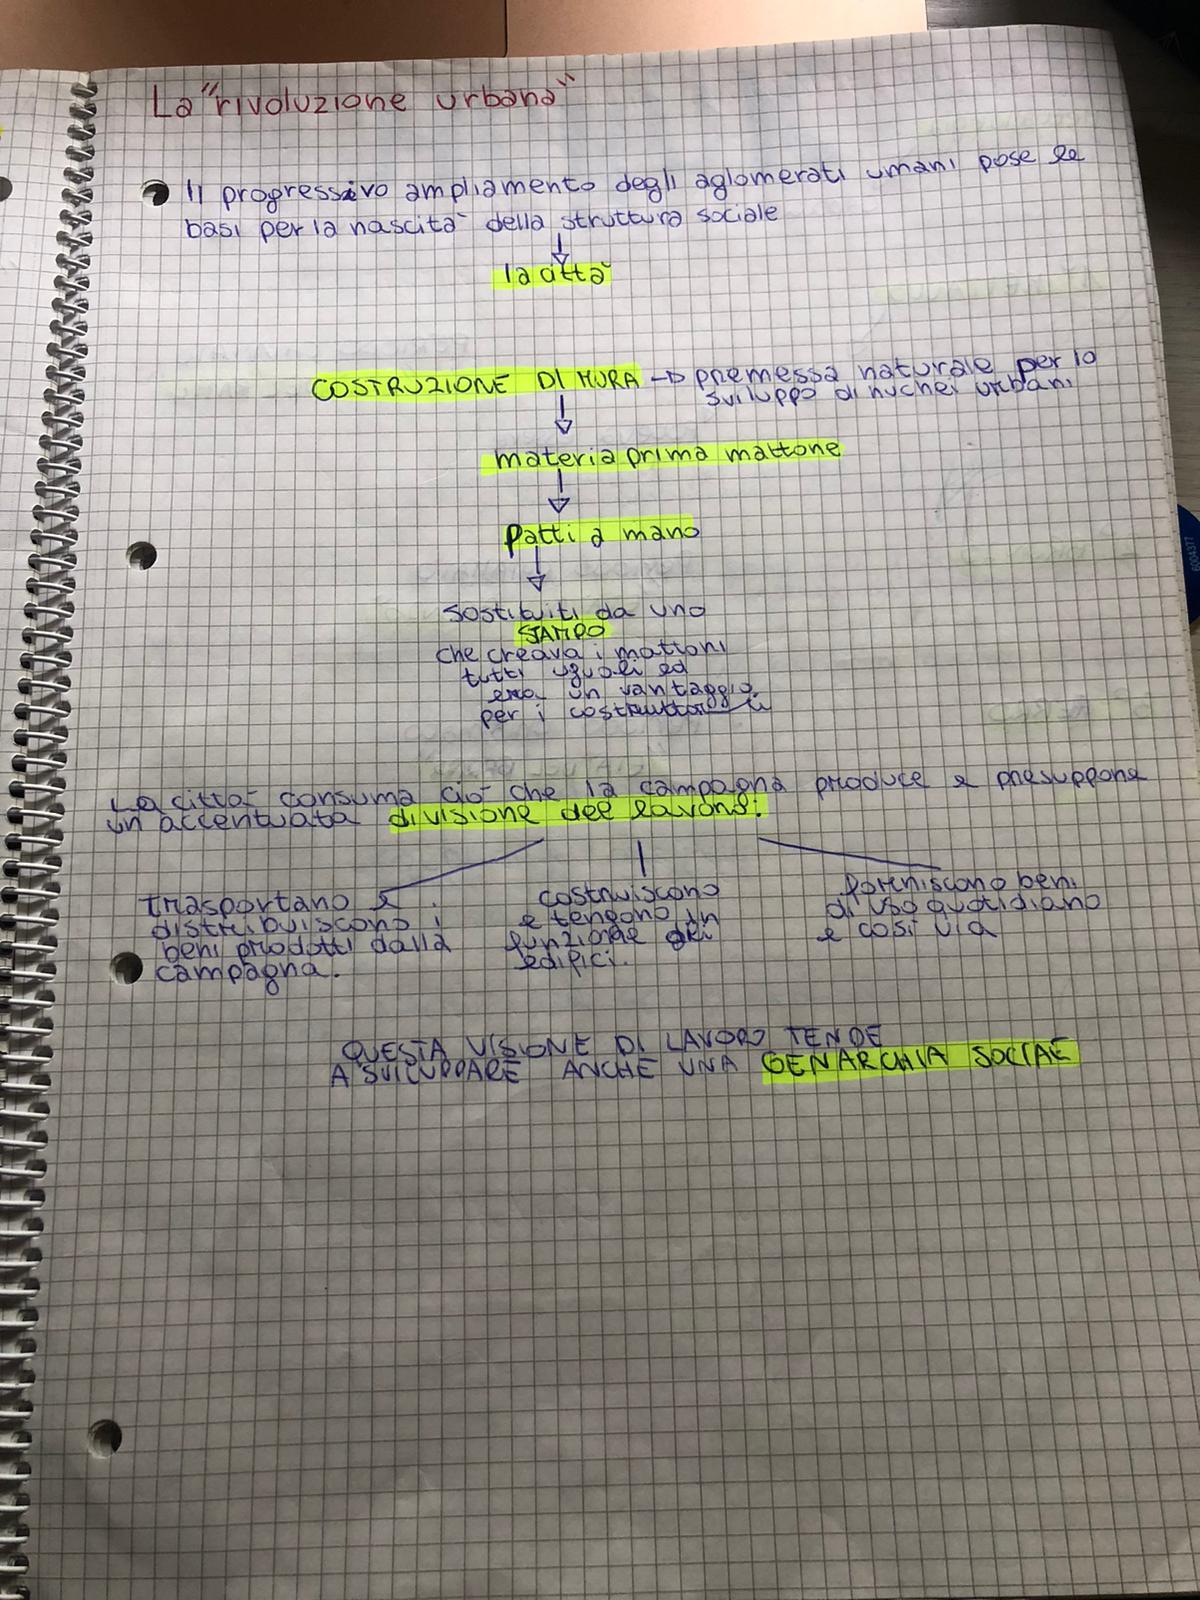 La "rivoluzione urbana"
Il progressivo ampliamento degli aglomerati umani pose le
basi per la nascita della struttura sociale
la città
COSTRUZIONE DI MURA → premessa naturale per lo
sviluppo di nuclei urbani
materia prima mattone
Fatti a mano
sostituiti da uno
STAMPO
che creava i mattoni
tutti uguali ed
era un vantaggio
per i costruttori
La città consuma ciò che la campagna produce e presuppone
un accentuata divisione del lavoro:
trasportano e
distribuiscono i
beni prodotti dalla
campagna.
costruiscono
e tengono in
funzione gli
edifici.
forniscono beni
di uso quotidiano
e così via
QUESTA VISIONE DI LAVORO TENDE
A SVILUPPARE ANCHE UNA GERARCHIA SOCIALE
6054377